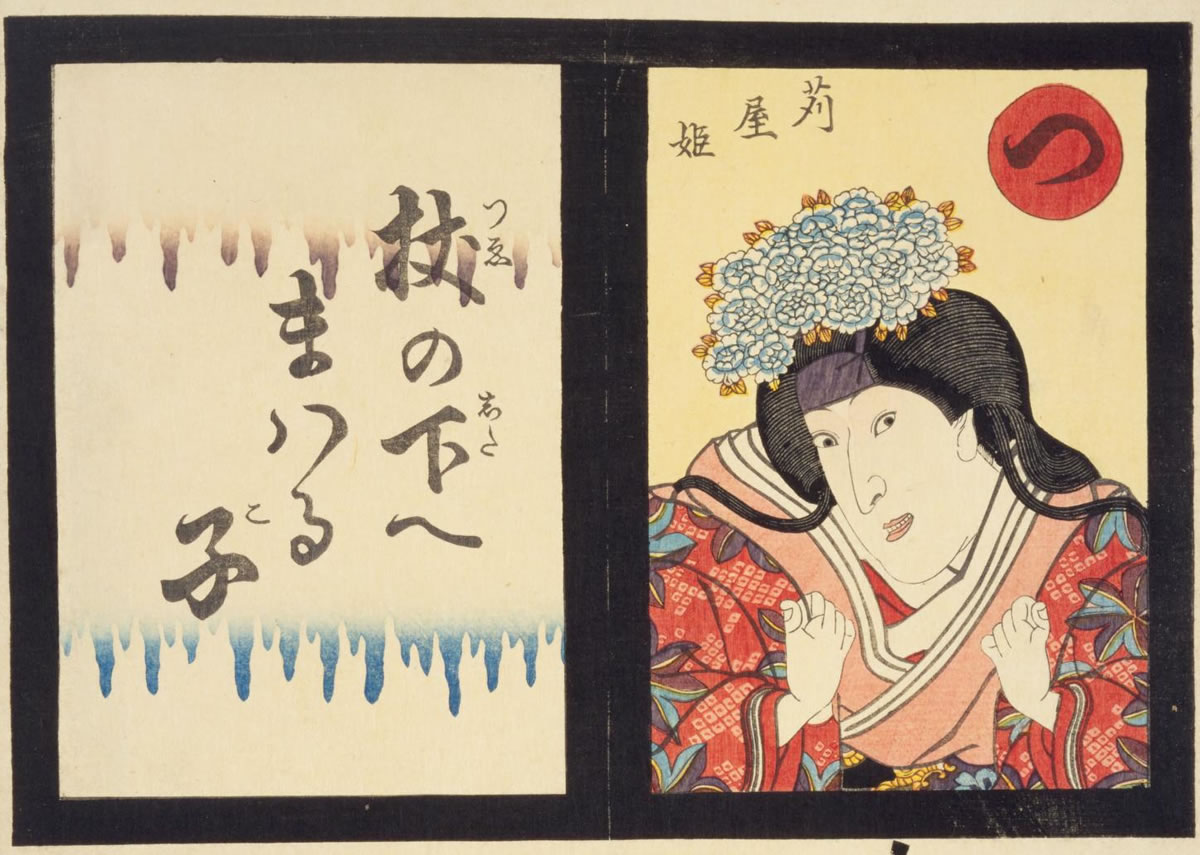 つ
苅屋姫
杖の下へ
つゑ
した
まハる
子
こ